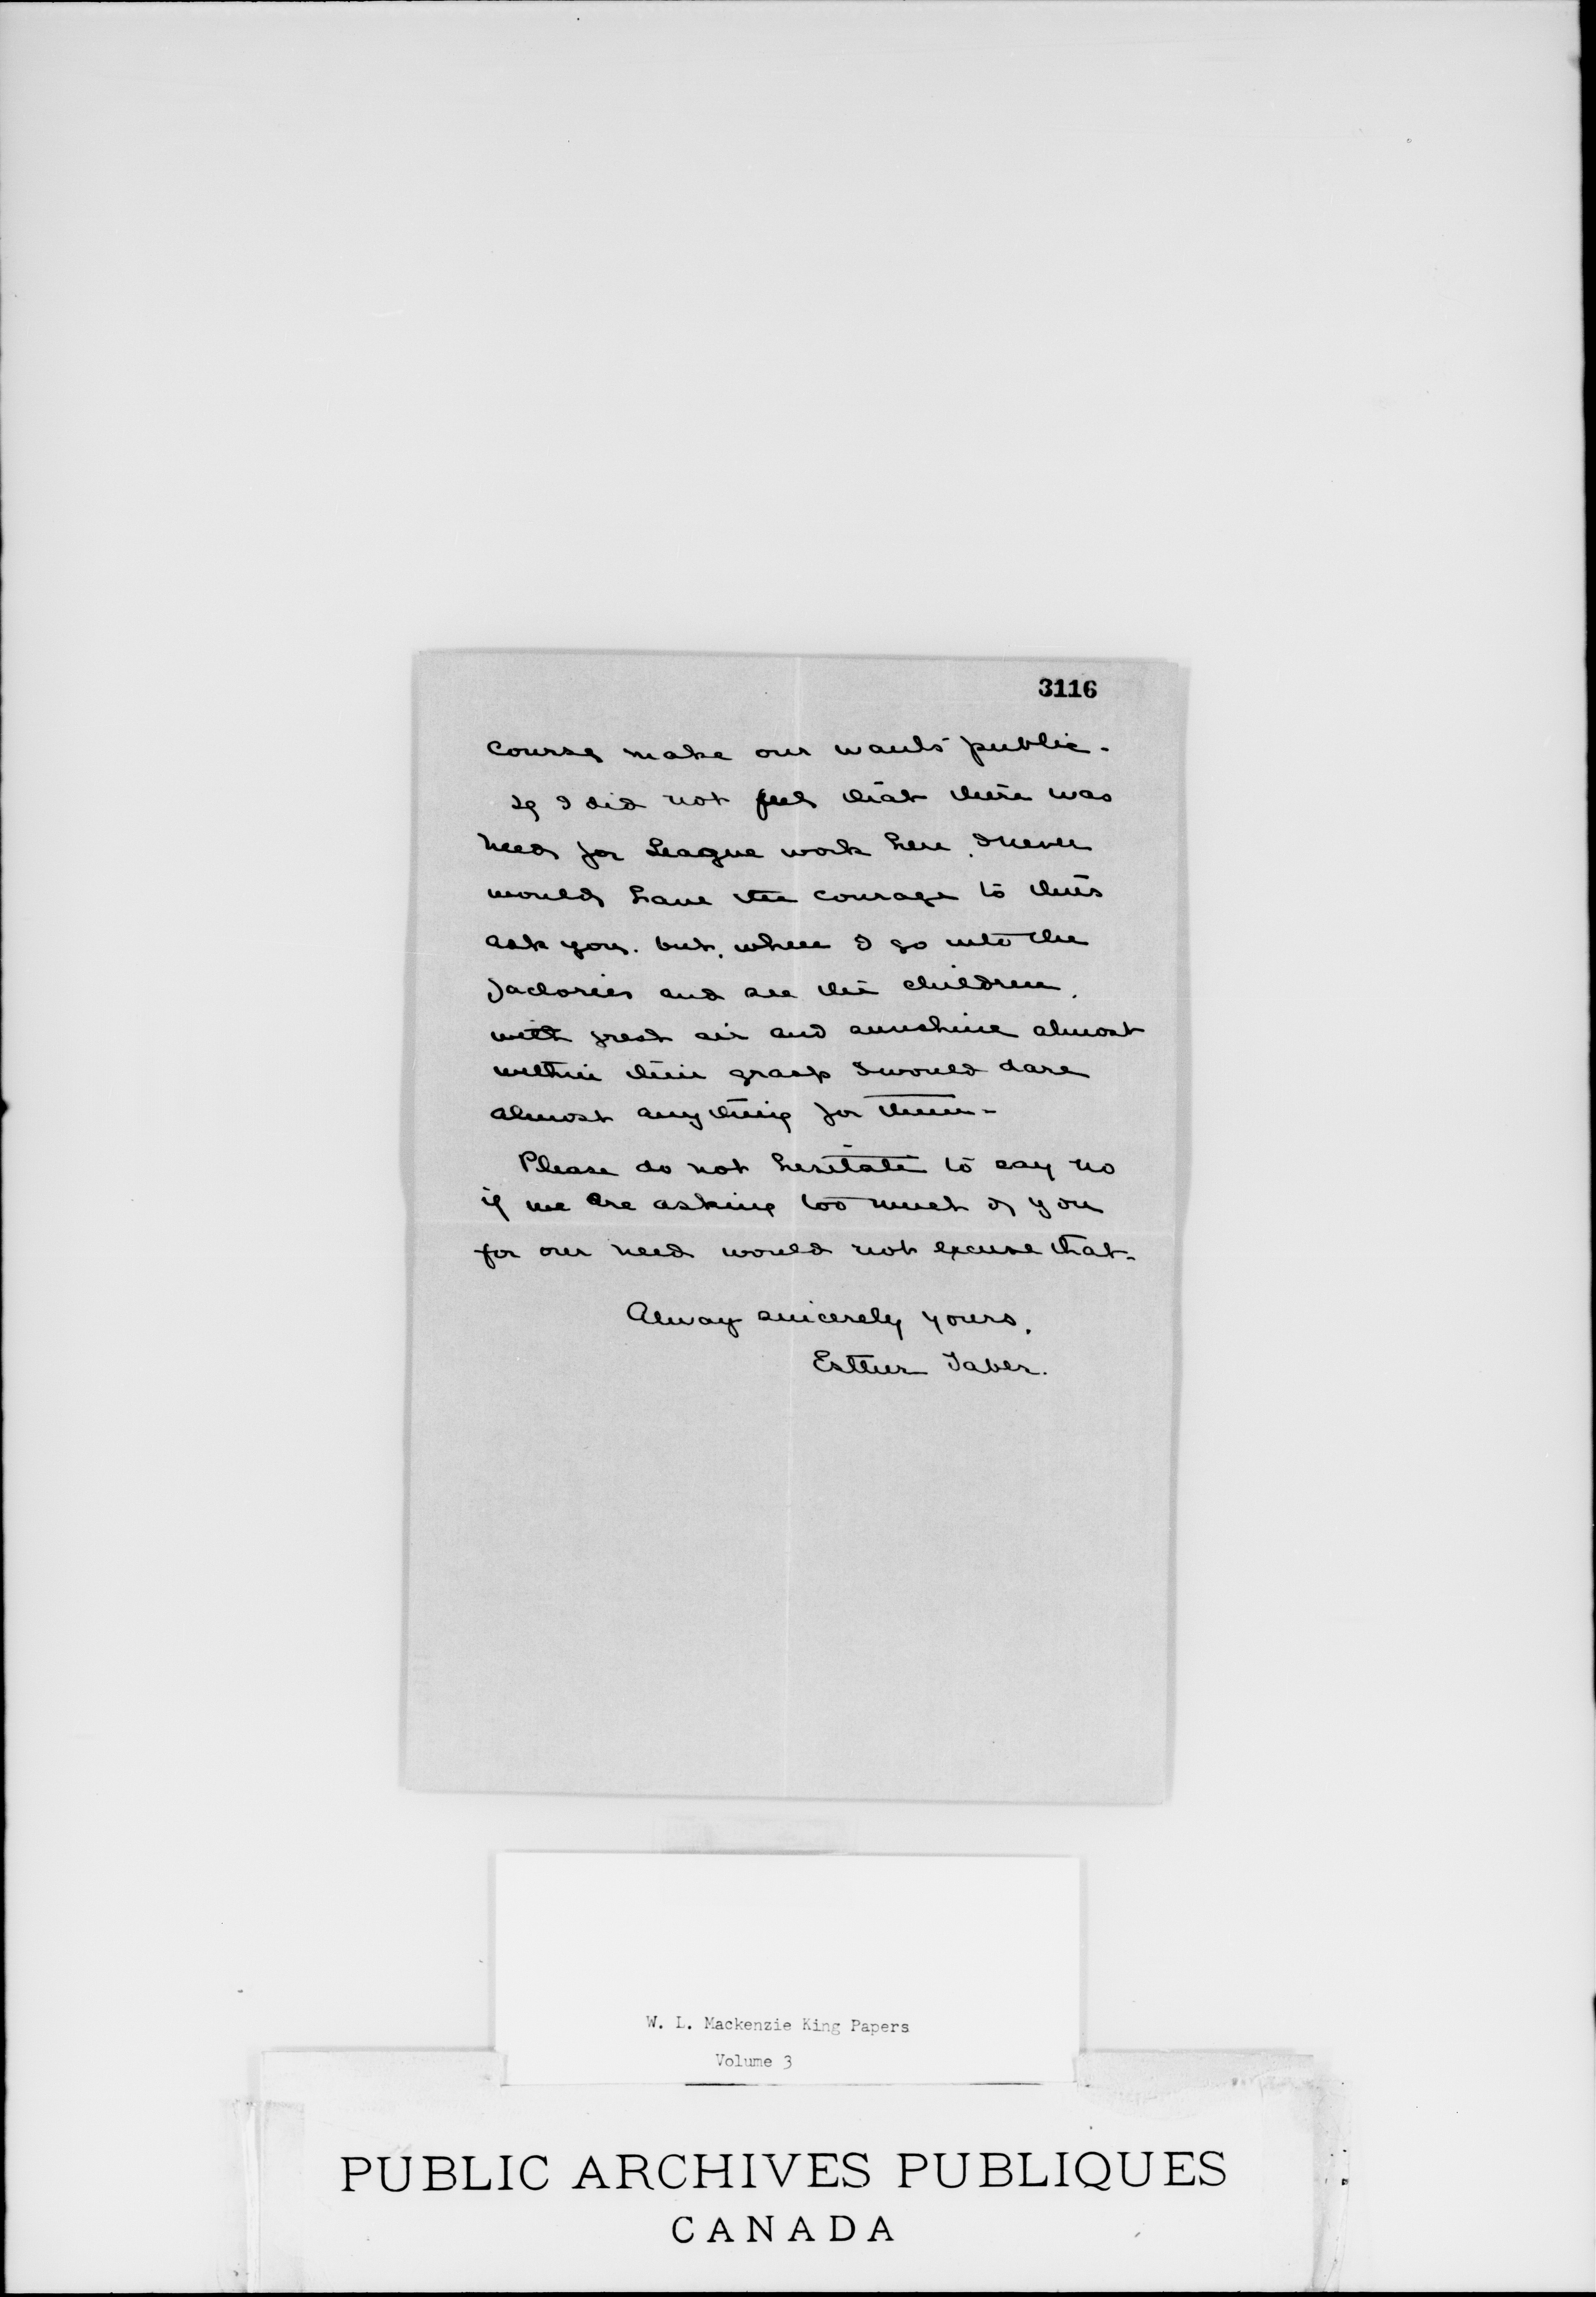 3116
course make our wants public.
If I did not feel that there was
need for League work here. I never
would have the courage to thus
ask you. but, when I go into the
factories and see the children,
with fresh air and sunshine almost
within their grasp I would dare
almost anything for them-
Please do not hesitate to say no
if we are asking too much of you
for our need would not excuse that-
Alway sincerely yours,
Esther Taber.
W. L. Mackenzie King Papers
Volume 3
PUBLIC ARCHIVES PUBLIQUES
CANADA